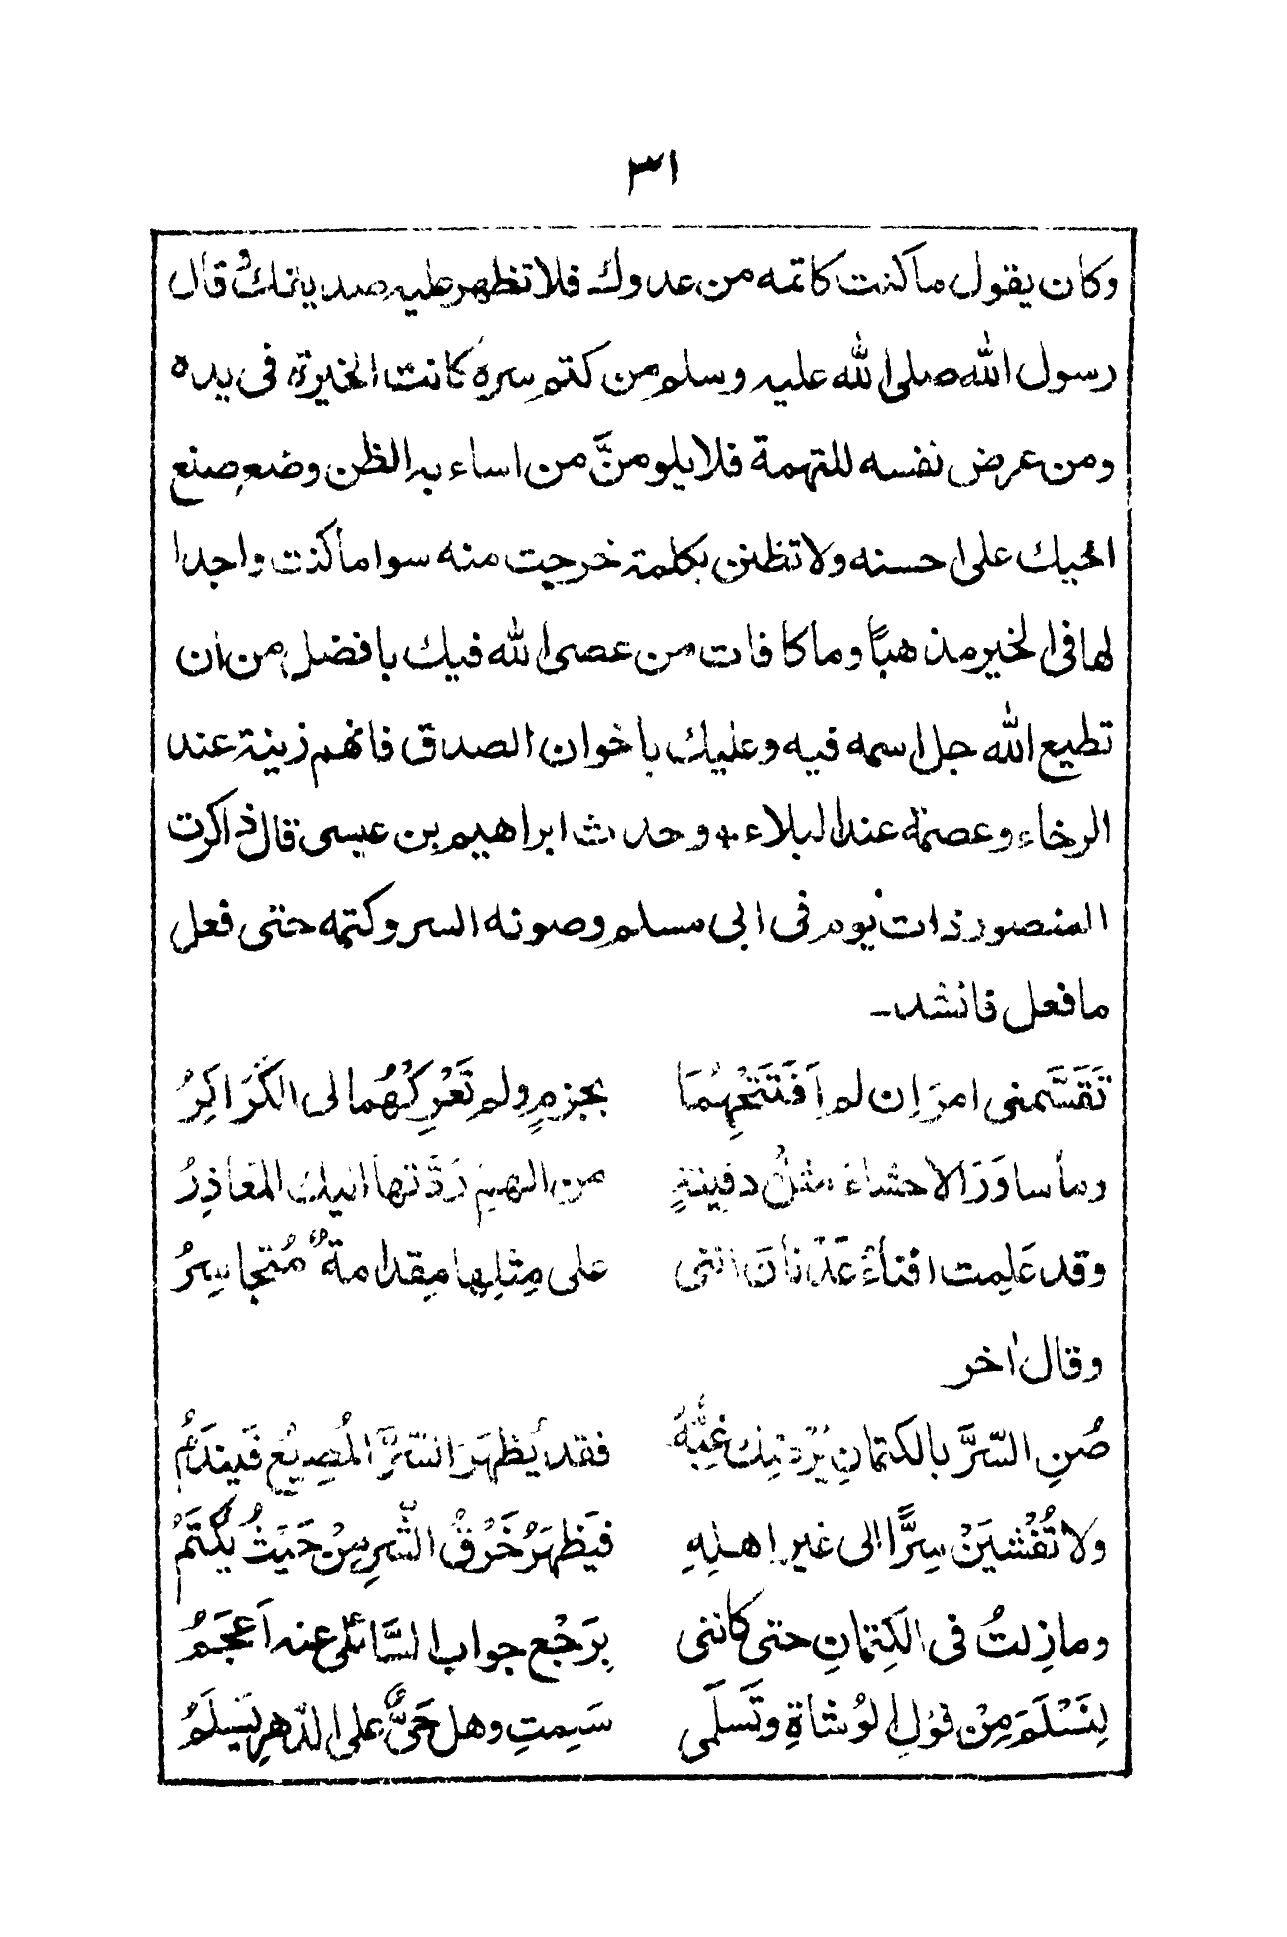 ٣١
وكان يقول ما كنت كاتمه من عدوك فلا تظهر عليه صديقك قال
رسول الله صلى الله عليه وسلم من كتم سره كانت الخيرة في يده
ومن عرض نفسه للتهمة فلا يلومنَّ من اساء به الظن وضع صنع
اخيك على احسنه ولا تظنن بكلمة خرجت منه سوا ما كنت واجدا
لها في الخير مذهبًا وما كافات من عصى الله فيك بافضل من ان
تطيع الله جل اسمه فيه وعليك باخوان الصدق فانهم زينة عند
الرخاء وعصمة عند البلاء + وحدث ابراهيم بن عيسى قال ذاكرت
المنصور ذات يوم في ابي مسلم وصونه السر وكتمه حتى فعل
ما فعل فانشد ـ
تَقَسَّمني امرَانِ لم اَفتَتَحْهُمَا بجزمٍ ولم تَعْرِكْهُما لي الكَرَاكِرُ
وما ساوَرَ الاحشاءَ مثلُ دفينةٍ من الهم رَدَّتها اليك المَعَاذِرُ
وقد عَلِمت افناءُ عَدْنَانَ انني على مِثلِها مِقدامةٌ مُتجاسِرُ
وقال اخر
صُنِ السّرَّ بالكتمانِ يُرْضِك غِبُّهُ فقد يُظهَرَ السّرَّ المُضِيعُ فَيندَمُ
ولا تُفْشِيَنْ سِرًّا الى غير اهلِهِ فيَظهَرُ خَرْقُ السّرِ مِنْ حَيْثُ يُكْتَمُ
وما زِلتُ في الكِتمانِ حتى كانني بِرَجْعِ جوابِ السَّائلي عنه اَعجَمُ
لِنَسْلَمَ مِنْ قولِ الوُشاةِ وتَسلَمي سَلِمتِ وهل حَيٌّ على الدّهرِ يَسلَمُ